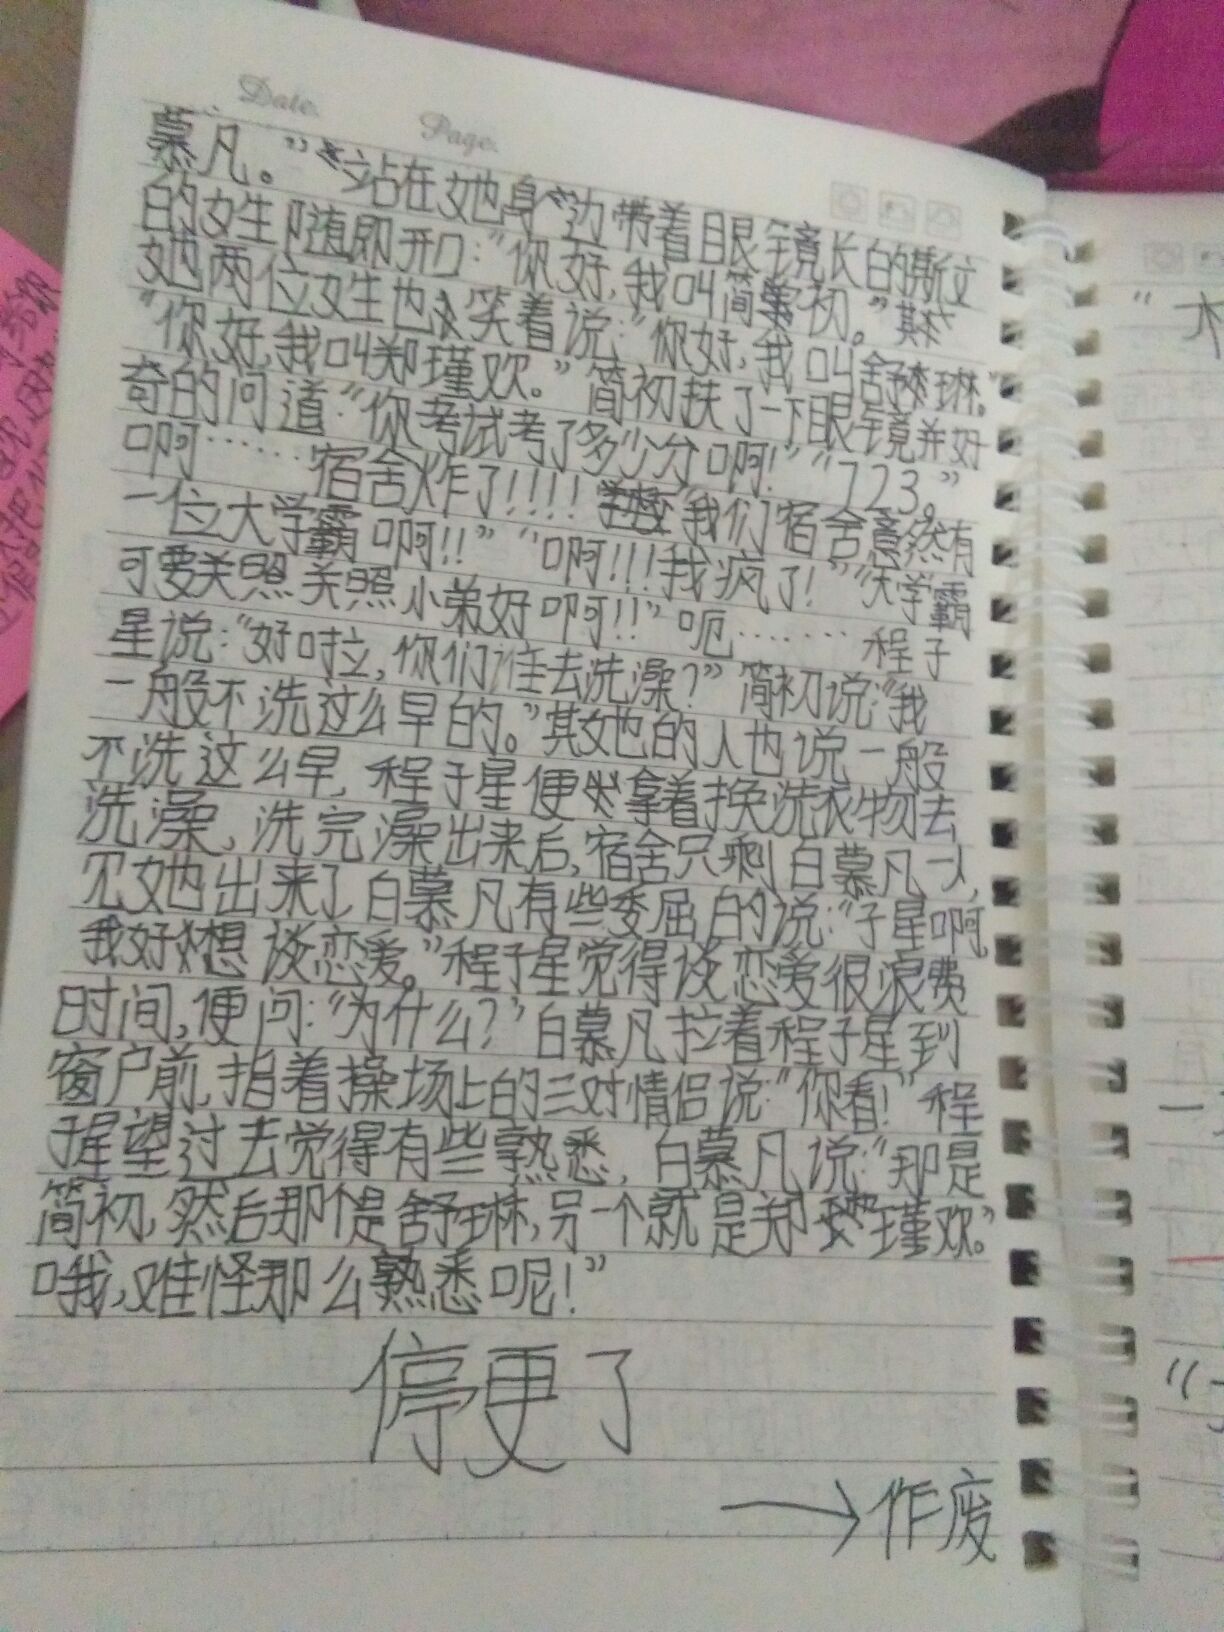 Date.
Page.
慕凡。”站在她身边带着眼镜长的斯文
的女生随即开口：“你好，我叫简初。”其
她两位女生也笑着说：“你好，我叫舒琳。”
“你好，我叫郑瑾欢。”简初扶了一下眼镜并好
奇的问道：“你考试考了多少分啊！”“723。”
啊……宿舍炸了！！！！我们宿舍竟然有
一位大学霸啊！！”“啊！！！我疯了！”“大学霸
可要关照关照小弟好啊！！”呃……程子
星说：“好啦，你们谁去洗澡？”简初说：“我
一般不洗这么早的。”其她的人也说一般
不洗这么早，程子星便拿着换洗衣物去
洗澡，洗完澡出来后，宿舍只剩白慕凡一人，
见她出来了白慕凡有些委屈的说：“子星啊，
我好想谈恋爱。”程子星觉得谈恋爱很浪费
时间，便问：“为什么？”白慕凡拉着程子星到
窗户前，指着操场上的三对情侣说：“你看！”程
子星望过去觉得有些熟悉，白慕凡说：“那是
简初，然后那个是舒琳，另一个就是郑瑾欢。”
哦，难怪那么熟悉呢！”
停更了
→作废